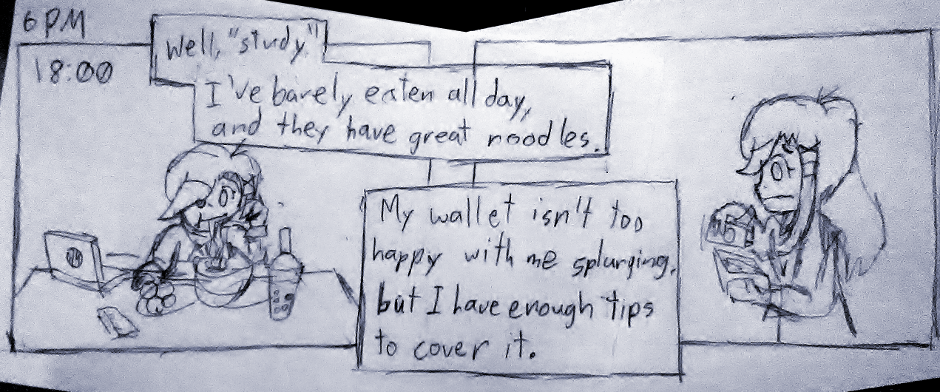 6 PM
18:00
Well, "study,"
I've barely eaten all day,
and they have great noodles.
My wallet isn't too
happy with me splurging,
but I have enough tips
to cover it.
$5